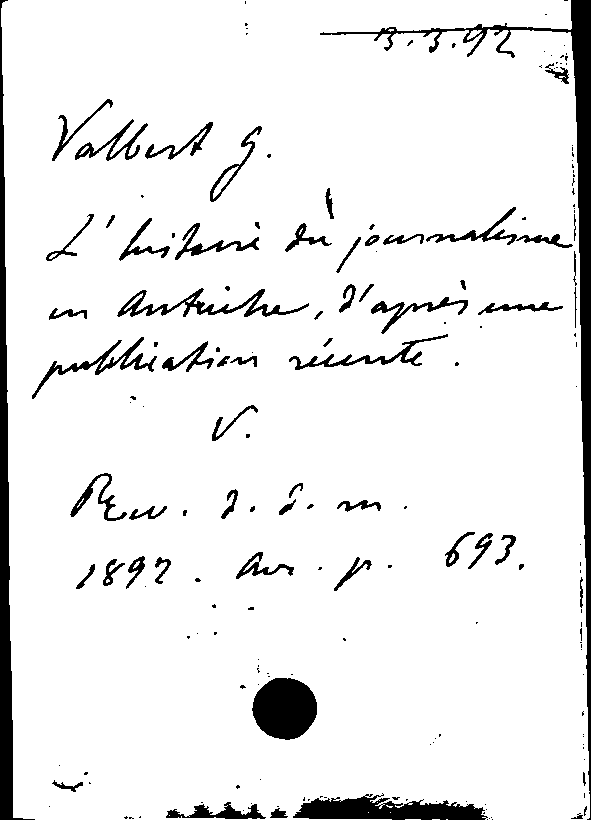 3.3.92
Valbert G.
L'histoire du journalisme
en Autriche, d'après une
publication récente.
V.
Rev. d. d. m.
1892. Avr. p. 693.